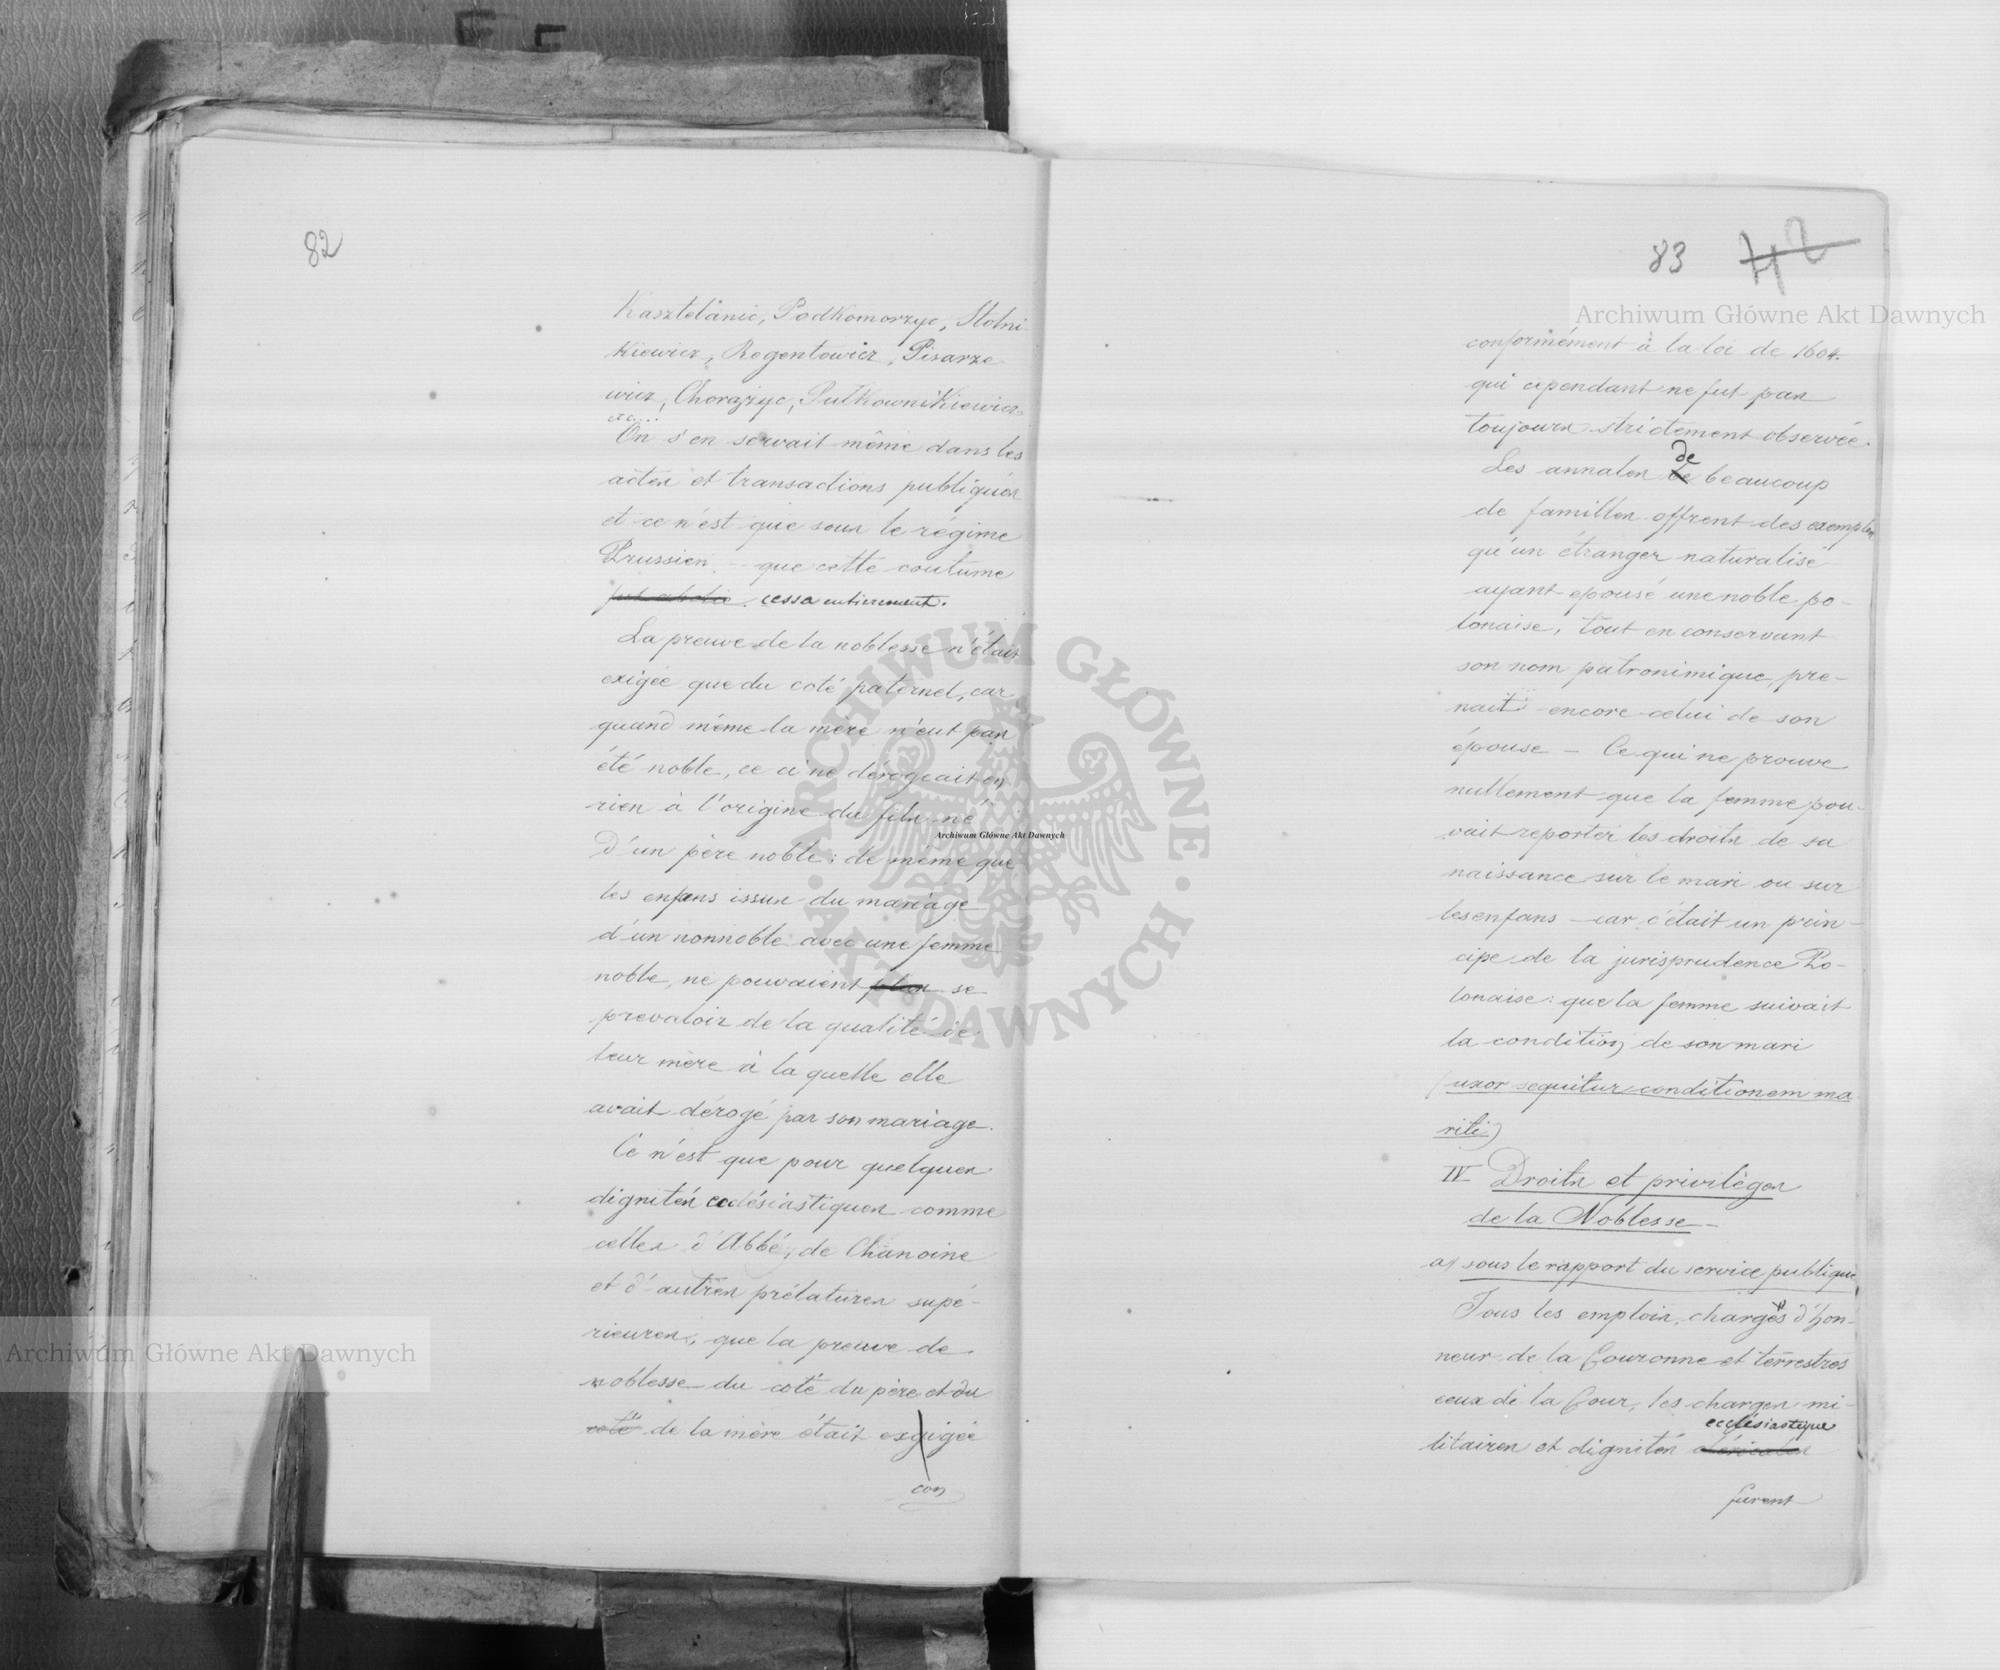 82
Kasztelanic, Podkomorzyc, Stolni
kiewicz, Regentowicz, Pisarze
wicz, Chorążyc, Pułkownikiewicz
etc...
On s'en servait même dans les
actes et transactions publiques
et ce n'est que sous le régime
Prussien que cette coutume
fut abolie. cessa entierement.
La preuve de la noblesse n'était
exigée que du coté paternel, car
quand même la mère n'eut pas
été noble, ce ci ne dérogeait en
rien à l'origine du fils né
d'un père noble; de même que
les enfans issus du mariage
d'un nonnoble avec une femme
noble, ne pouvaient plus se
prevaloir de la qualité de
leur mère à la quelle elle
avait dérogé par son mariage.
Ce n'est que pour quelques
dignités ecclésiastiques comme
celles d'Abbé, de Chanoine
et d'autres prélatures supé-
rieures, que la preuve de
noblesse du coté du père et du
coté de la mère était exigée
con
83 42
conformément à la loi de 1604.
qui cependant ne fut pas
toujours strictement observée.
de
Les annales de beaucoup
de familles offrent des exemples
qu'un étranger naturalisé
ayant epousé une noble po-
lonaise, tout en conservant
son nom patronimique, pre-
nait encore celui de son
épouse – Ce qui ne prouve
nullement que la femme pou-
vait reporter les droits de sa
naissance sur le mari ou sur
les enfans – car c'était un prin-
cipe de la jurisprudence Po-
lonaise: que la femme suivait
la condition de son mari
(uxor sequitur conditionem ma
riti)
IV Droits et privilèges
de la Noblesse –
a) sous le rapport du service publique
Tous les emplois, charges d'hon-
neur de la Couronne et terrestres
ceux de la Cour, les charges mi-
ecclésiastique
litaires et dignités cléricales
furent
Archiwum Główne Akt Dawnych
Archiwum Główne Akt Dawnych
Archiwum Główne Akt Dawnych
ARCHIWUM GŁÓWNE · AKT DAWNYCH ·